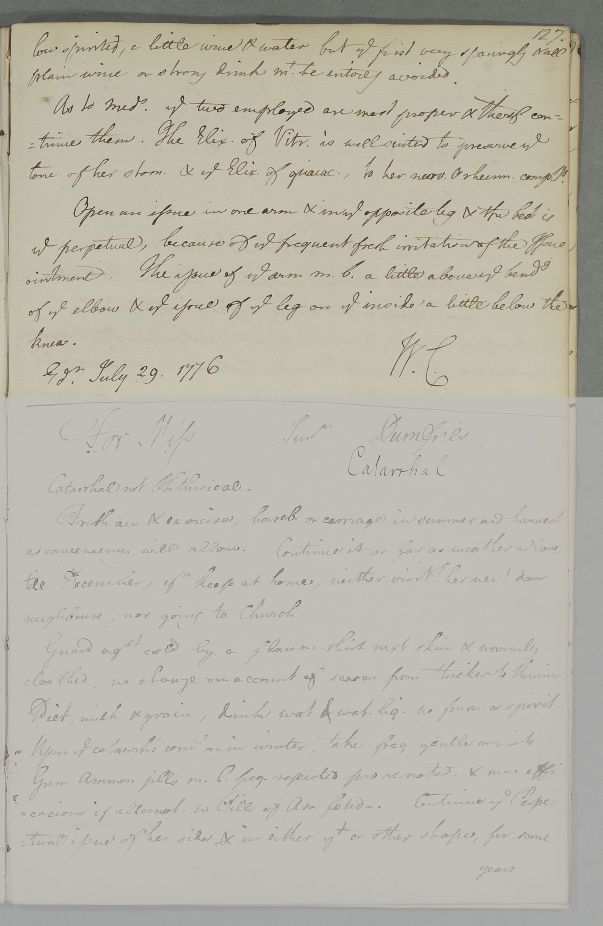 127.
low spirited, a little wine & water but yt first very sparingly & all
plain wine or strong drink mt. be entirely avoided.
As to meds. ye two employed are most proper & therf. con=
=tinue them. The Elix. of Vitr. is well suited to preserve ye
tone of her stom. & ye Elix. of guaiac., to her nerv. & rheum. complts.
Open an issue in one arm & in ye opposite leg & the best is
ye perpetual, because of ye frequent fresh irritation of the Issue
ointment. The issue of ye arm m. b. a little above ye bend
of ye elbow & ye issue of ye leg on ye inside a little below the
knee.
Edr. July 29. 1776
W. C.
For Miss Surn. Dumfries
Catarrhal
Catarrhal not Phthisical.
Fresh air & exercise, horseb. or carriage in summer and harvest
as conveniency will allow. Continue it as far as weather allows,
till December, yn keep at home, neither visit her next door
neighbours, nor going to Church.
Guard agst cold by a flann. shirt next skin & warmly
cloathed, no change on account of season from thicker to thinner.
Diet, milk & grain, drink wat. & wat. liq. no ferm. or spirit.
Upon ye catarrh's coming in winter, take freq. gentle vomits.
Gum Ammon pills m. b. freq. repeated pro re nata. & more effi=
=cacious if alternat. w Pills of Asa fetida. Continue ye Perpe=
=tual issue of her side & in either yt or other shape, for some
years